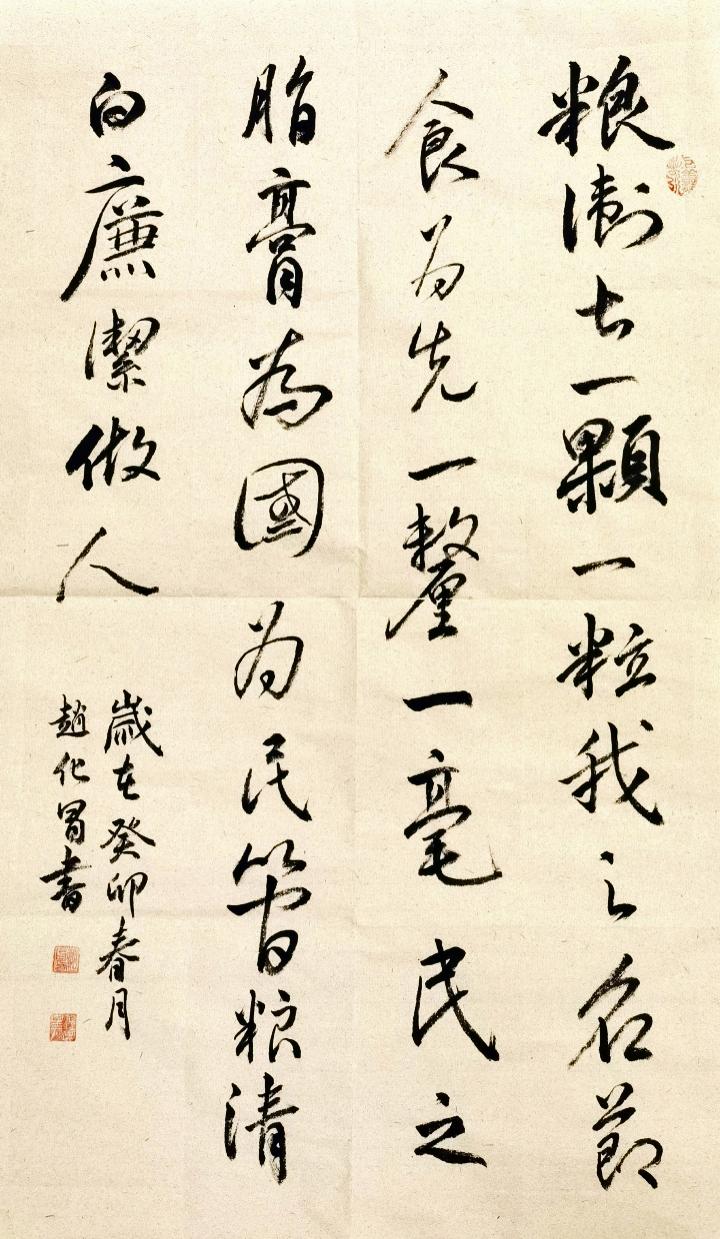 粮衛士一顆一粒我之名節
食为先一釐一毫民之
脂膏為國为民管粮清
白廉潔做人
歲在癸卯春月
趙化書